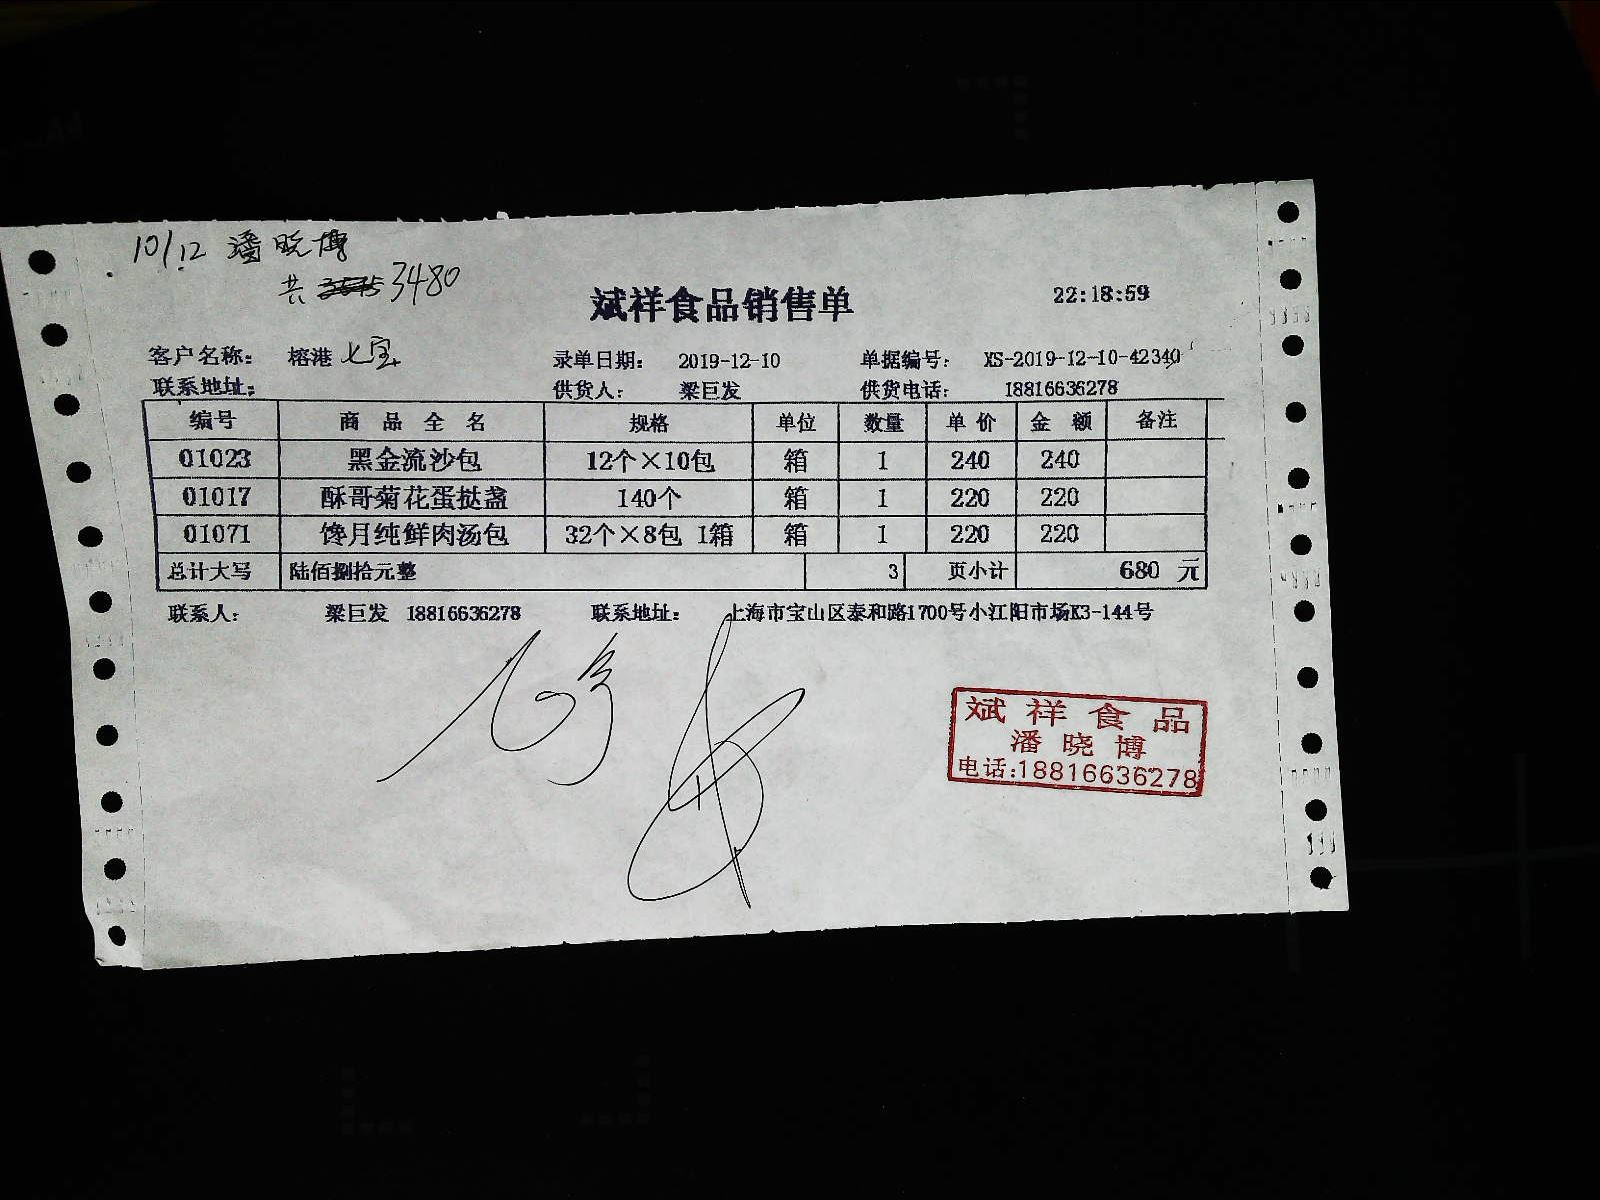 10/12 潘晓博
共 3480
斌祥食品销售单 22:18:59
客户名称: 榕港 七宝 录单日期: 2019-12-10 单据编号: XS-2019-12-10-42340
联系地址: 供货人: 梁巨发 供货电话: 18816636278
编号 商品全名 规格 单位 数量 单价 金额 备注
01023 黑金流沙包 12个×10包 箱 1 240 240
01017 酥哥菊花蛋挞盏 140个 箱 1 220 220
01071 馋月纯鲜肉汤包 32个×8包 1箱 箱 1 220 220
总计大写 陆佰捌拾元整 3 页小计 680 元
联系人: 梁巨发 18816636278 联系地址: 上海市宝山区泰和路1700号小江阳市场K3-144号
斌祥食品
潘晓博
电话:18816636278